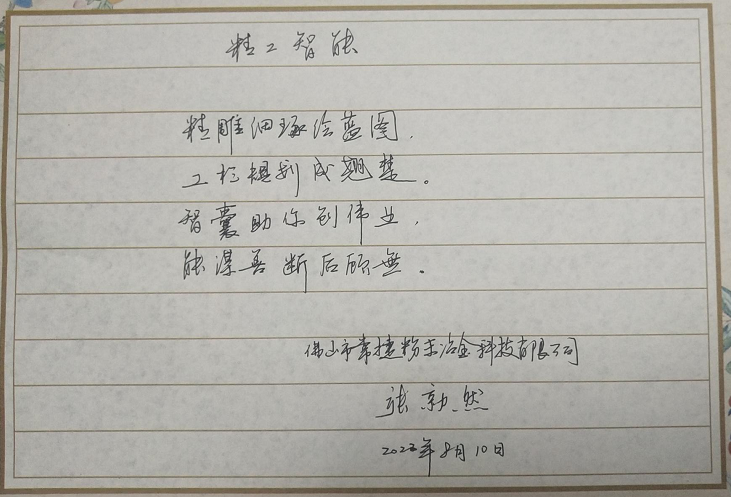 精工智能
精雕细琢绘蓝图,
工于规划成翘楚。
智囊助你创伟业,
能谋善断后顾無。
佛山市常捷粉末冶金科技有限公司
张勃然
2023年8月10日